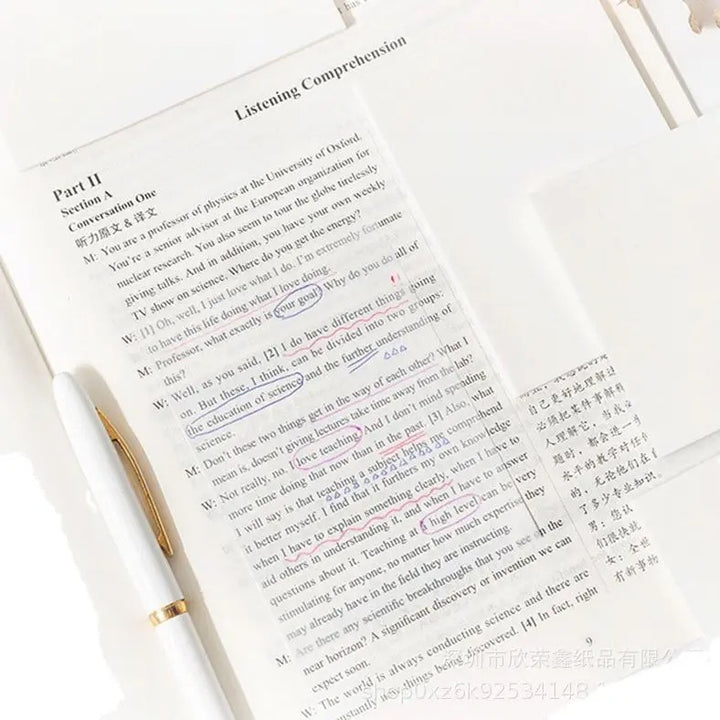 has
Listening Comprehension
Part II
Section A
Conversation One
听力原文 & 译文
M: You are a professor of physics at the University of Oxford.
You're a senior advisor at the European organization for
nuclear research. You also seem to tour the globe tirelessly
giving talks. And in addition, you have your own weekly
TV show on science. Where do you get the energy?
W: [1] Oh, well, I just love what I do. I'm extremely fortunate
to have this life doing what I love doing.
M: Professor, what exactly is your goal? Why do you do all of
this?
W: Well, as you said, [2] I do have different things going
on. But these, I think, can be divided into two groups:
the education of science and the further understanding of
science.
M: Don't these two things get in the way of each other? What I
mean is, doesn't giving lectures take time away from the lab?
W: Not really, no. I love teaching. And I don't mind spending
more time doing that now than in the past. [3] Also, what
I will say is that teaching a subject helps me comprehend
it better myself. I find that it furthers my own knowledge
when I have to explain something clearly, when I have to
aid others in understanding it, and when I have to answer
questions about it. Teaching at a high level can be very
stimulating for anyone, no matter how much expertise they
may already have in the field they are instructing.
M: Are there any scientific breakthroughs that you see on the
near horizon? A significant discovery or invention we can
expect soon.
W: The world is always conducting science and there are
constantly new things being discovered. [4] In fact, right
9
自己更好地理解这
必须把某件事解释
人理解它，当我必
题时，都会进一步
水平的教学对任何
的，无论他们在
了多少专业知识。
男：您认
们很快就
女：全世
有新事物
深圳市欣荣鑫纸品有限公司
shop0xz6k92534148